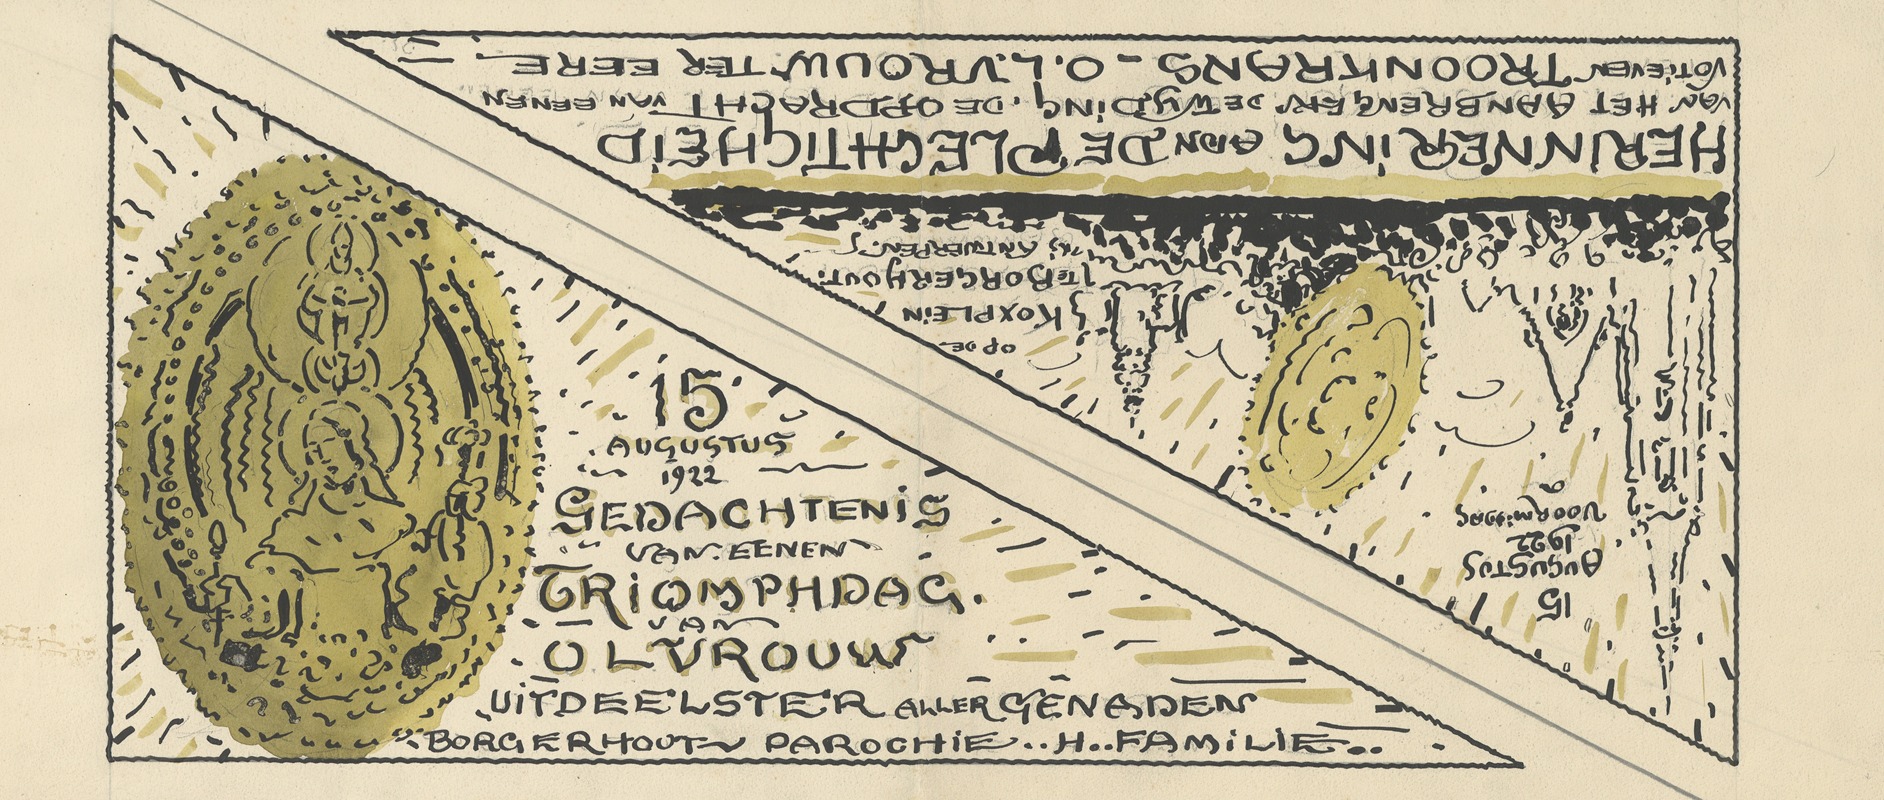 15
AUGUSTUS
1922
GEDACHTENIS
VAN EENEN
TRIOMPHDAG.
VAN
O L VROUW
UITDEELSTER ALLER GENADEN
BORGERHOUT PAROCHIE..H..FAMILIE..
15
AUGUSTUS
1922
VOORMIDDAG
OP DE
KOXPLEIN
TE BORGERHOUT
ANTWERPEN
HERINNERING AAN DE PLECHTIGHEID
VAN HET AANBRENGEN DE WYDING DE OPDRACHT VAN EENEN
VOTIEVEN TROONKRANS - O.L.VROUW TER EERE